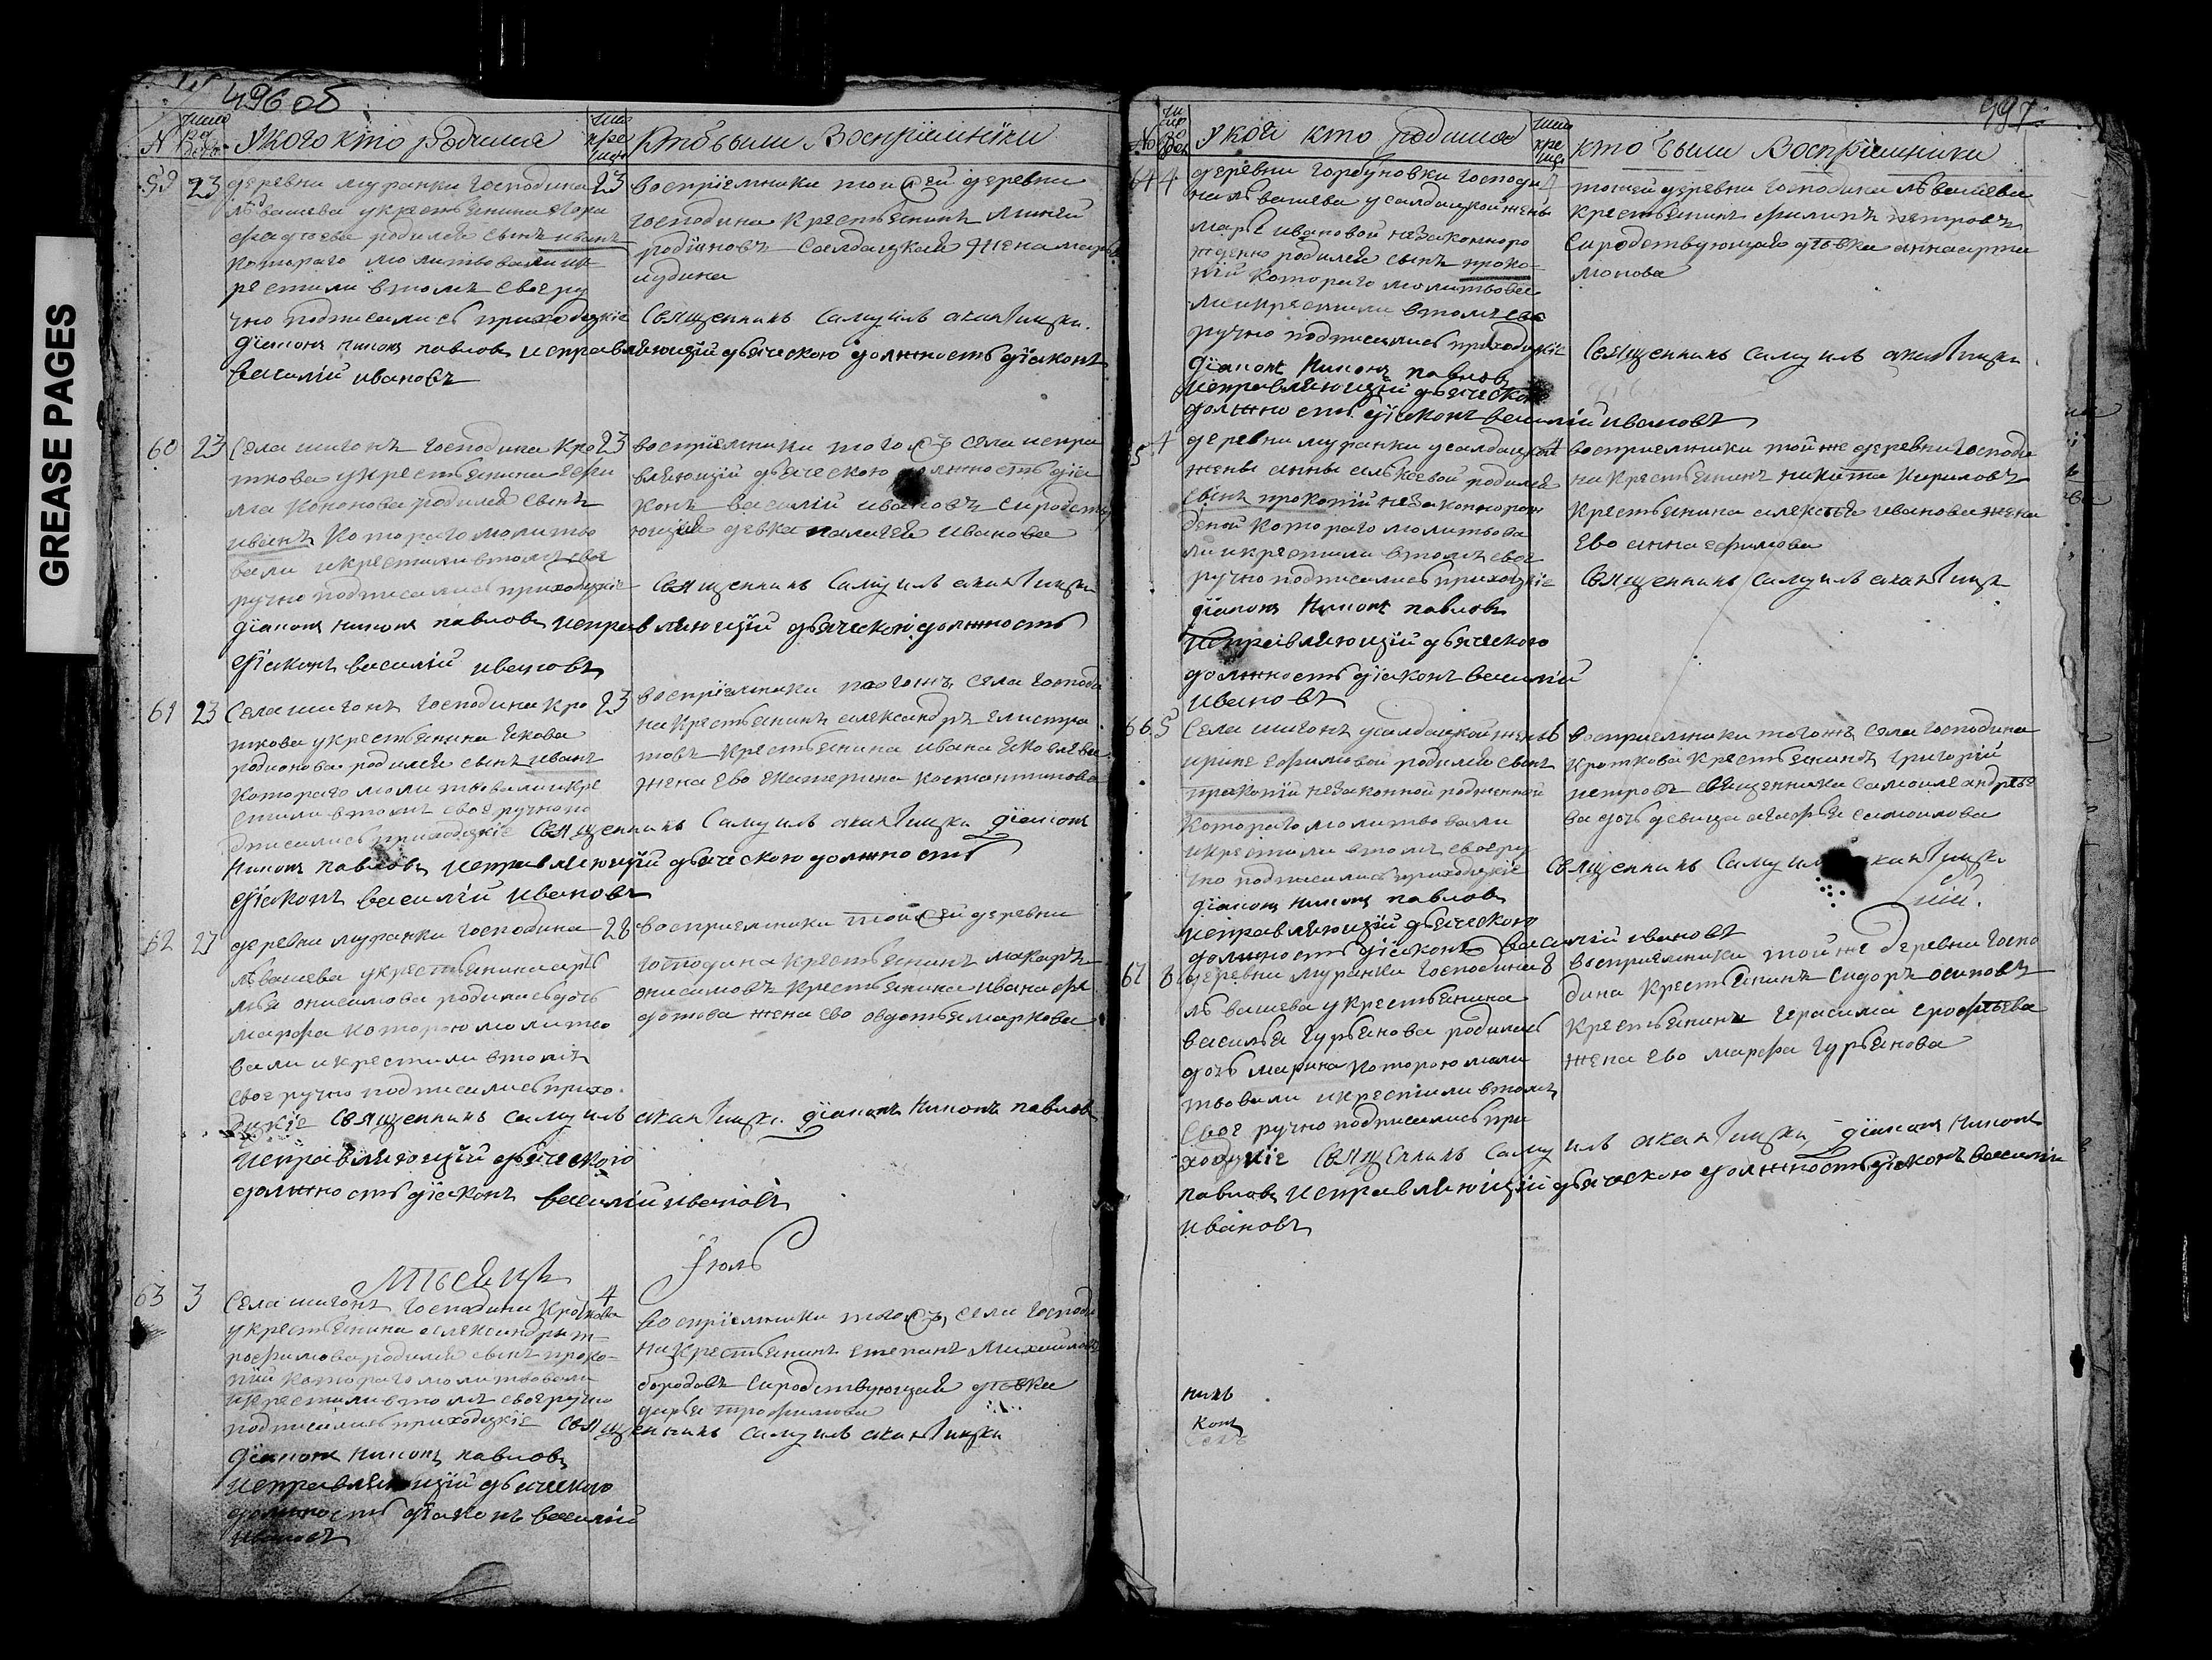 GREASE PAGES
496 об
№
число
рож
У кого кто родился
число
кре
щен
Кто были Восприемники
59 23 деревни муранки Господина 23
львашева у крестьянина
родился сынъ иванъ
котораго молитвовали и к
рестили в томъ своеру
чно подписались приходцкiе
дiаконъ никонъ павловъ исправляющiй дьяческою должность дiаконъ
василiй ивановъ
восприемники той же деревни
Господина Крестьянинъ
родiоновъ салдацкая жена марья
юдина
Священникъ Самуилъ
60 23 Села шигонъ Господина Кро 23
ткова у крестьянина Ефи
ма Кононова родился сынъ
иванъ котораго молитво
вали и крестили в томъ свое
ручно подписались приходцкiе
дiаконъ никонъ павловъ исправляющiй дьяческою должность
дiаконъ василiй ивановъ
восприемники того жъ села испра
вляющiй дьяческою должность дiа
конъ василiй ивановъ сиродств
ющая девка палагея иванова
Священникъ Самуилъ
61 23 Села шигонъ Господина Кро 23
ткова у крестьянина Якова
родионова родился сынъ иванъ
котораго молитвовали и кре
стили в томъ своеручно по
дписались приходцкiе Священникъ Самуилъ дiаконъ
никонъ павловъ исправляющiй дьяческою должность
дiаконъ василiй ивановъ
восприемники того жъ села Господи
на Крестьянинъ александръ елистра
товъ крестьянина ивана яковлева
жена ево екатерина костантинова
62 27 деревни муранки Господина 28
львашева у крестьянина
онисимова родилась дочь
марфа которою молитво
вали и крестили в томъ
своеручно подписались прихо
дцкiе Священникъ Самуилъ дiаконъ никонъ павловъ
исправляющiй дьяческою
должность дiаконъ василiй ивановъ
восприемники той же деревни
господина крестьянинъ макаръ
онисимовъ крестьянина ивана фе
дотова жена ево овдотья маркова
Мѣсяцъ Iюль
63 3 Села шигонъ Господина Кроткова 4
у крестьянина александра т
рофимова родился сынъ проко
пiй котораго молитвовали
и крестили в томъ своеручно
подписались приходцкiе Священникъ Самуилъ
дiаконъ никонъ павловъ
исправляющiй дьяческою
должность дiаконъ василiй
ивановъ
восприемники того жъ села Господи
на крестьянинъ степанъ михайловъ
бородавъ сиродствующая девка
дарья трофимова
497
№
У кого кто родился
число
кре
щен
кто были Восприемники
64 4 деревни горбуновки Господи 4
на львашева у салдацкой жены
марьi ивановой незаконноро
жденно родился сынъ проко
пiй котораго молитвова
ли и крестили в томъ свое
ручно подписались приходцкiе
дiаконъ никонъ павловъ
исправляющiй дьяческою
должность дiаконъ василiй ивановъ
той же деревни Господина львашева
крестьянинъ филипъ петровъ
сиродствующая девка анна арта
монова
Священникъ Самуилъ
65 4 деревни муранки у салдацкой 4
жены анны алексеевой родился
сынъ прокопiй незаконорож
деной котораго молитвова
ли и крестили в томъ свое
ручно подписались приходцкiе
дiаконъ никонъ павловъ
исправляющiй дьяческою
должность дiаконъ василiй
ивановъ
восприемники той же деревни Господи
на Крестьянинъ никита кириловъ
крестьянина алексея иванова жена
ево анна ефимова
Священникъ Самуилъ
66 5 Села шигонъ у салдацкой жены 6
ирине ефимовой родился сынъ
прокопiй незаконной рожденной
котораго молитвовали
и крестили в томъ своеру
чно подписались приходцкiе
дiаконъ никонъ павловъ
исправляющiй дьяческою
должность дiаконъ василiй ивановъ
восприемники того жъ села Господина
Кроткова Крестьянинъ Григорiй
петровъ священника самоила андрее
ва дочь девица агафья самоилова
Священникъ Самуилъ
67 8 деревни муранки Господина 8
львашева у крестьянина
василья гурьянова родилась
дочь марина которою моли
твовали и крестили в томъ
своеручно подписались при
ходцкiе Священникъ Самуилъ дiаконъ никонъ
павловъ исправляющiй дьяческою должность дiаконъ василiй
ивановъ
восприемники той же деревни Госпо
дина Крестьянинъ Сидоръ осиповъ
крестьянина герасима ерофѣева
жена ево марфа гурьянова
никъ
конъ